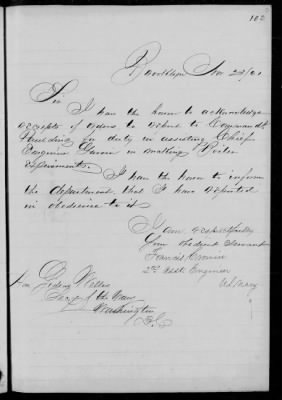 102
Brooklyn Nov 23/61
Sir
I have the honor to acknowledge
receipt of orders to report to Commandr
for duty in assisting Chief
Engineer in making Boiler
experiments.
I have the honor to inform
the department, that I have reported
in obedience to it
I am respectfully
Your obedient Servant
Francis Cronin
2nd Asst Engineer
U.S. Navy
Hon Gideon Welles
Secy of the Navy
Washington
D.C.